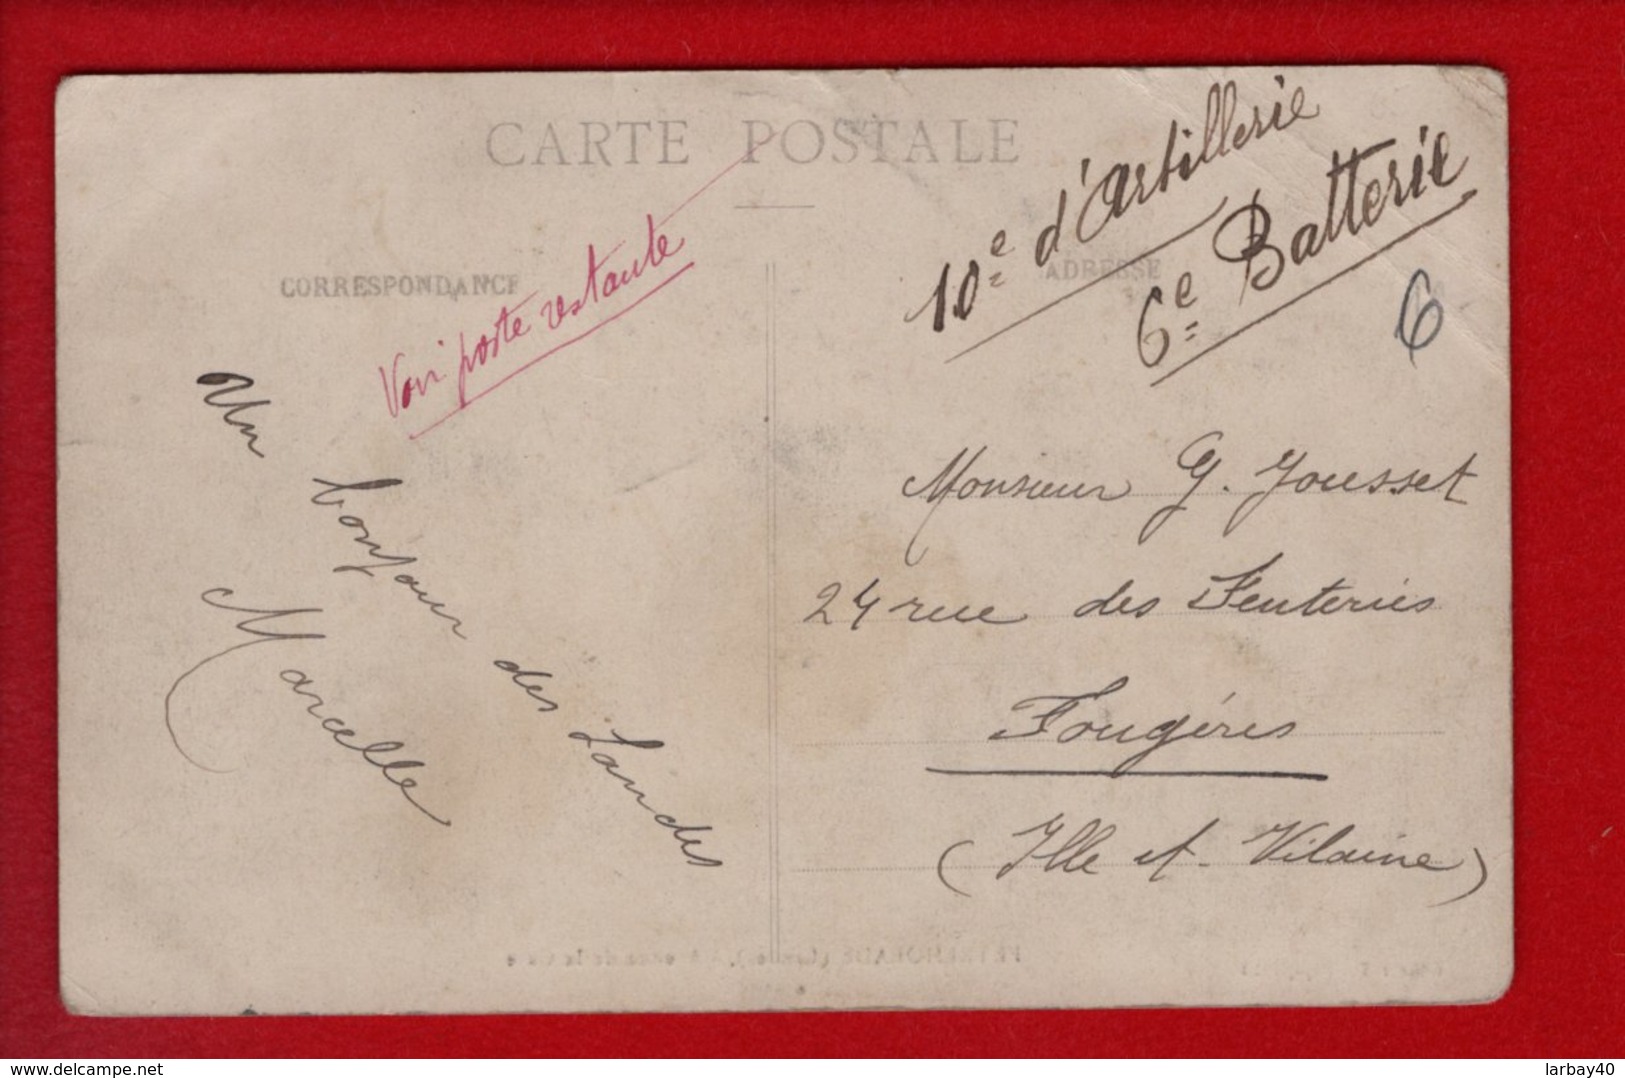 CARTE POSTALE
CORRESPONDANCE
ADRESSE
Voir poste restante
10e d'Artillerie
6e Batterie
6
Un bonjour des Landes
Marcelle
Monsieur G. Jousset
24 rue des Feuteries
Fougéres
(Ille et-Vilaine)
delcampe.net
larbay40